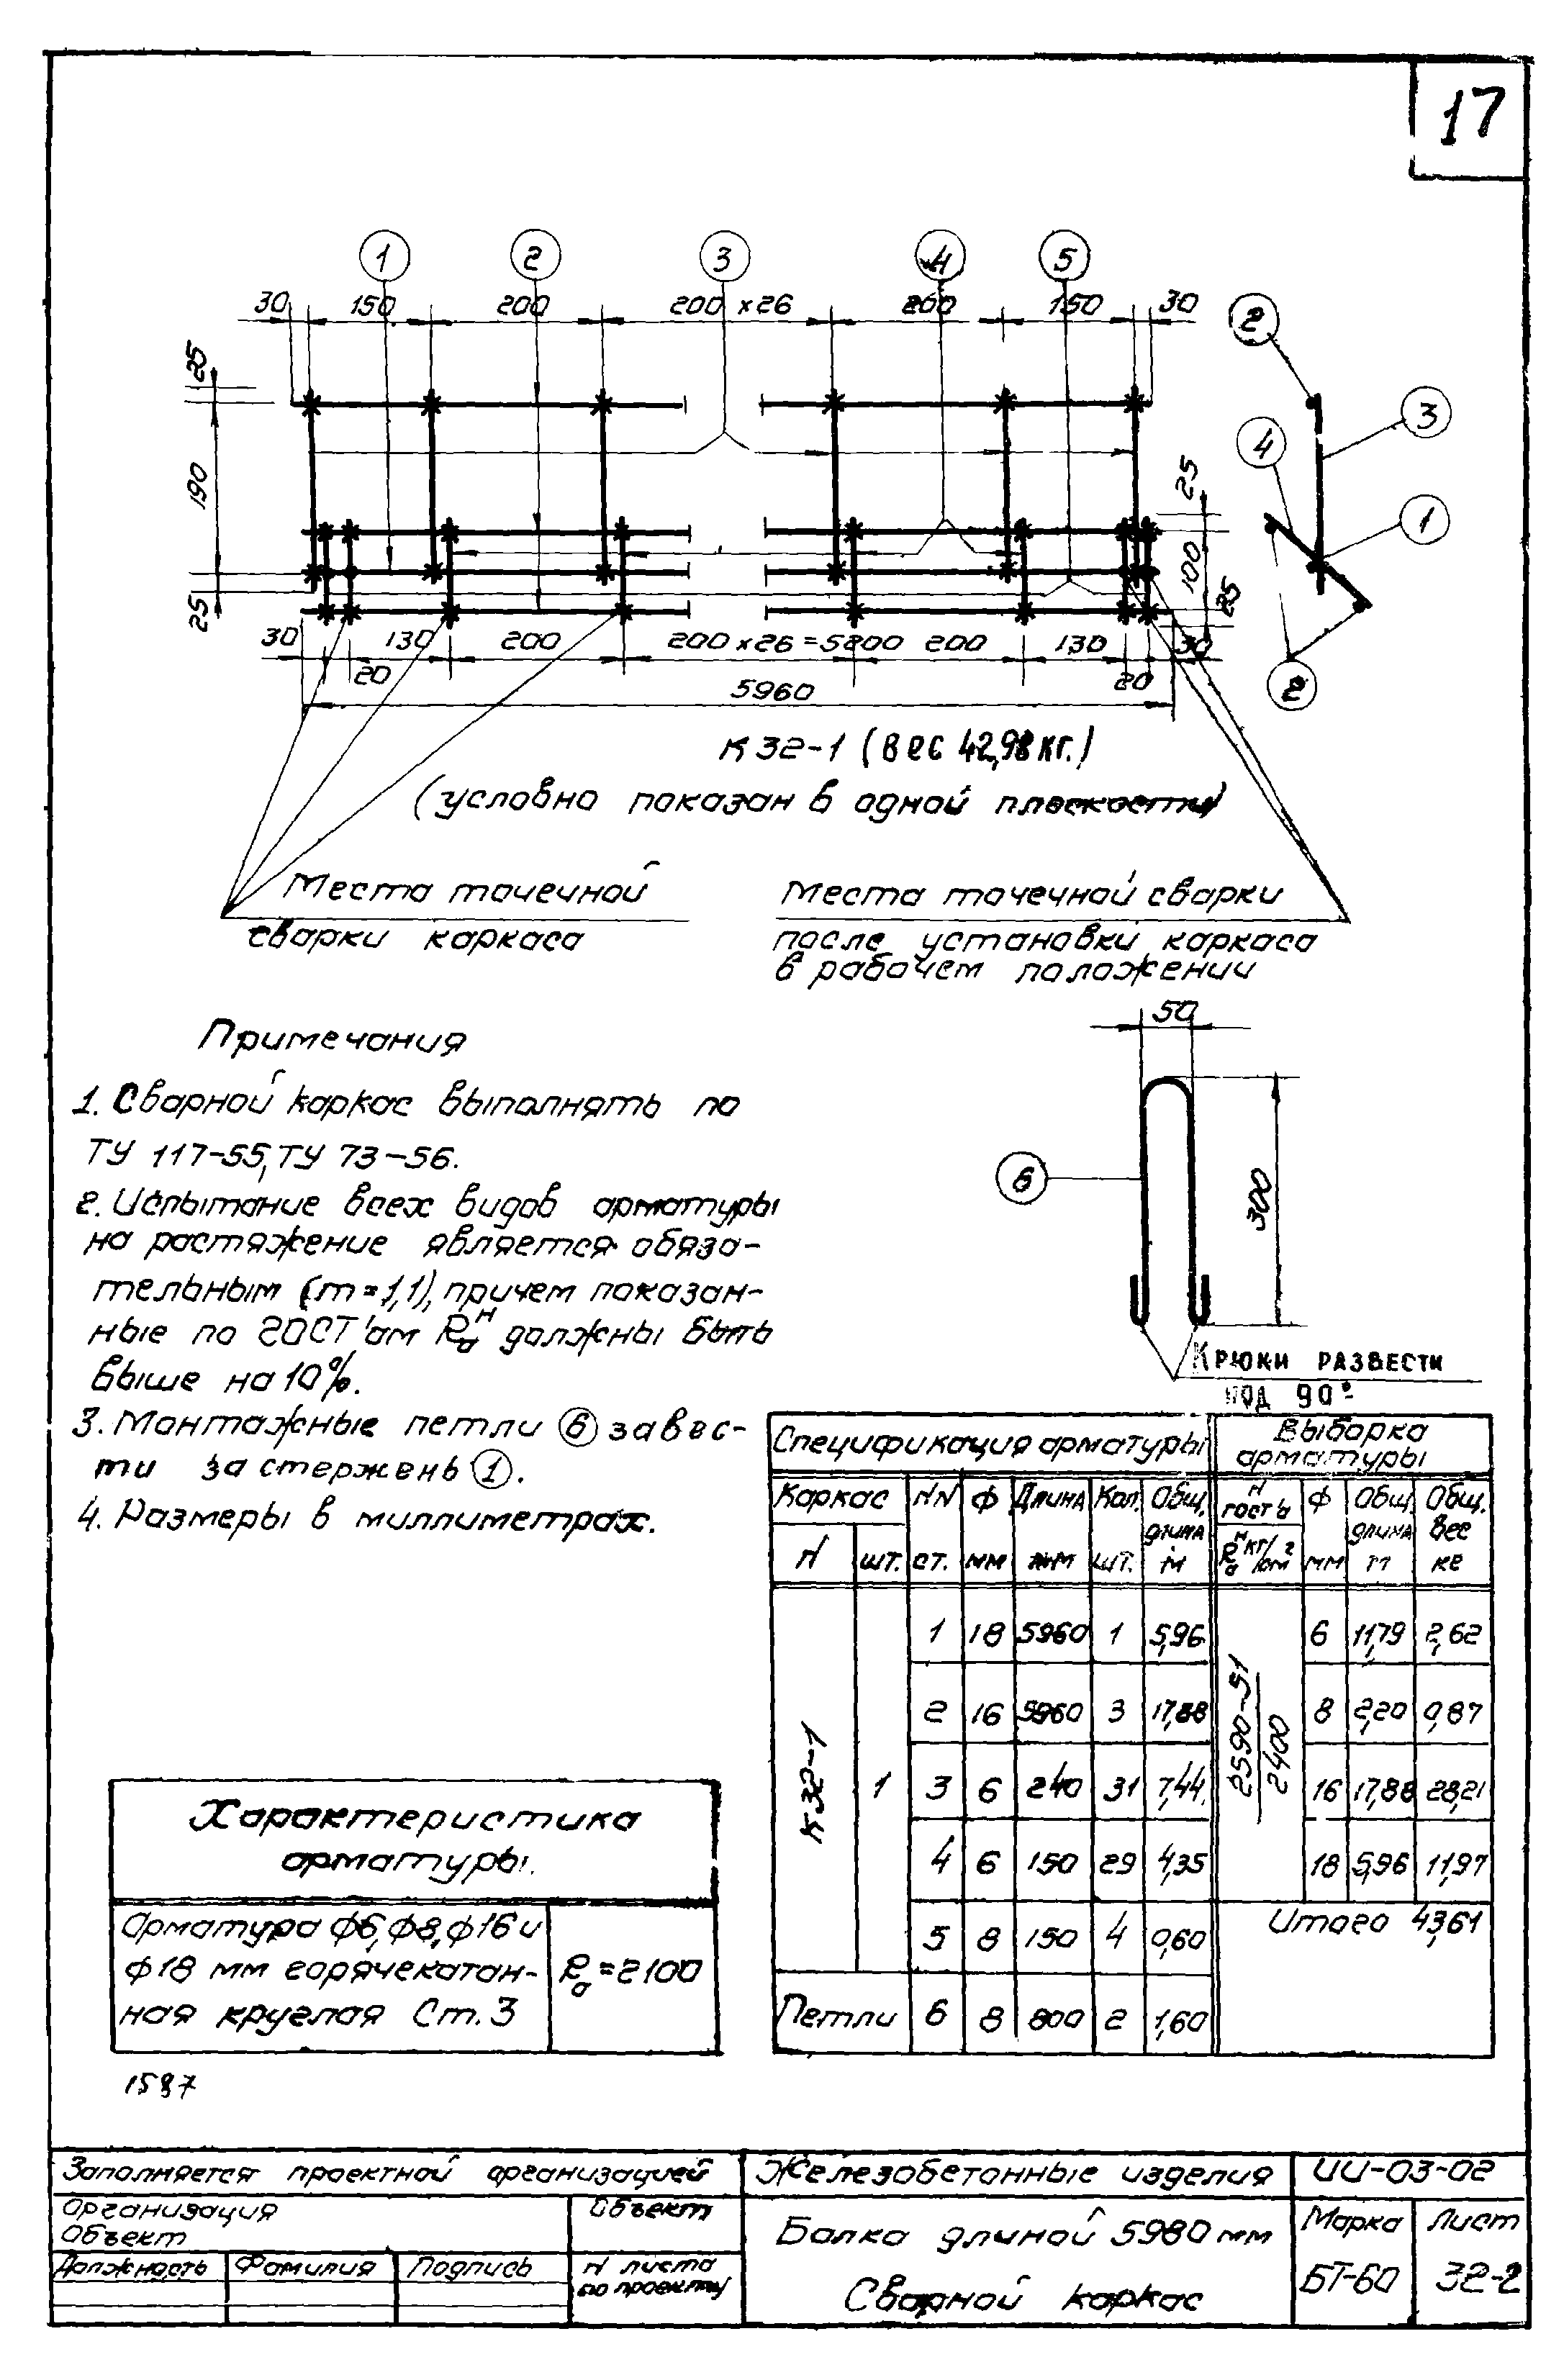 17
1 2 3 4 5
30 150 200 200 x 26 200 150 30
2
25
3
4
190
25
1
100
25
25
30 130 200 200 x 26 = 5200 200 130 30
20 20
2
5960
К 32-1 (вес 42,98 кг.)
(условно показан в одной плоскости)
Места точечной
сварки каркаса
Места точечной сварки
после установки каркаса
в рабочем положении
50
6
300
Крюки развести
под 90°
Примечания
1. Сварной каркас выполнять по
ТУ 117-55, ТУ 73-56.
2. Испытание всех видов арматуры
на растяжение является обяза-
тельным (m=1,1), причем показан-
ные по ГОСТ'ам Raн должны быть
выше на 10%.
3. Монтажные петли 6 завес-
ти за стержень 1.
4. Размеры в миллиметрах.
Спецификация арматуры Выборка арматуры
Каркас NN Ф Длина Кол. Общ. длина N госта Ф Общ. длина Общ. вес
N шт. ст. мм мм шт. м Raн кг/см2 мм м кг
К 32-1 1 2590-51 2400
1 18 5960 1 5,96 6 11,79 2,62
2 16 5960 3 17,88 8 2,20 0,87
3 6 240 31 7,44 16 17,88 28,21
4 6 150 29 4,35 18 5,96 11,97
5 8 150 4 0,60 Итого 43,61
Петли 6 8 800 2 1,60
Характеристика
арматуры.
Арматура ф6, ф8, ф16 и
ф18 мм горячекатан-
ная круглая Ст. 3
Ra = 2100
1587
Заполняется проектной организацией
Организация
Объект
Объект
Должность Фамилия Подпись
N листа
по проекту
Железобетонные изделия
ИИ-03-02
Балка длиной 5980 мм
Сварной каркас
Марка Лист
БТ-60 32-2